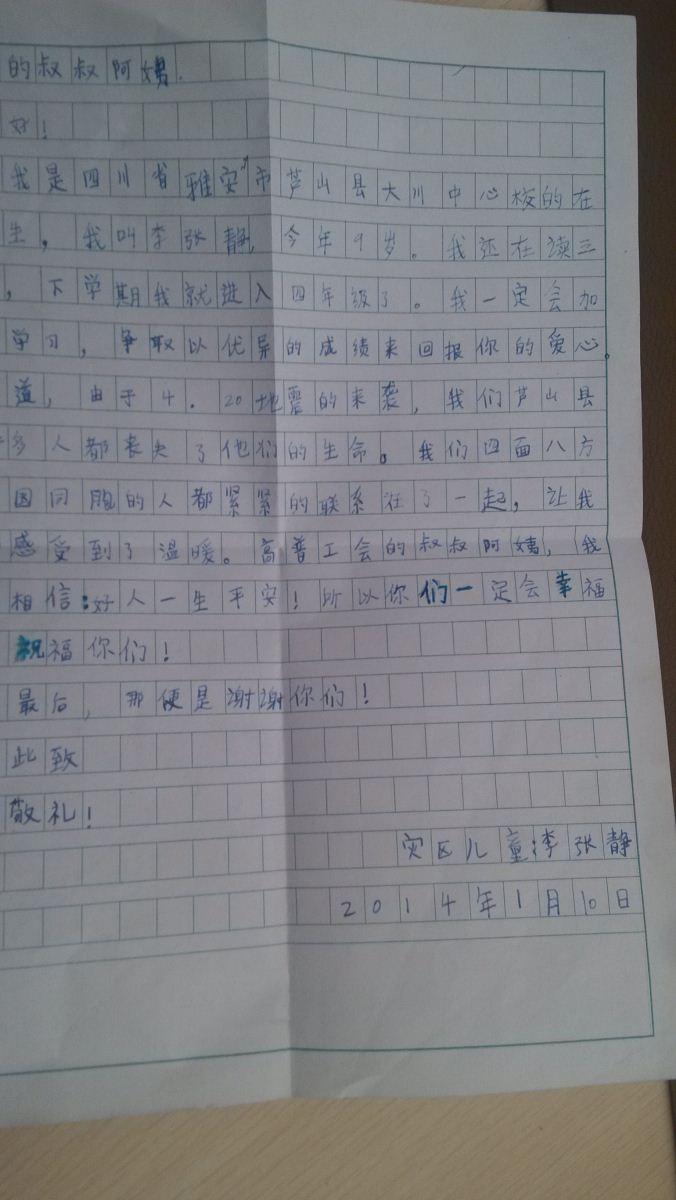 的叔叔阿姨.
好!
我是四川省雅安市芦山县大川中心校的在
生，我叫李张静，今年9岁。我还在读三
，下学期我就进入四年级了。我一定会加
学习，争取以优异的成绩来回报你的爱心。
道，由于4.20地震的来袭，我们芦山县
多人都丧失了他们的生命。我们四面八方
因同胞的人都紧紧的联系在了一起，让我
感受到了温暖。高普工会的叔叔阿姨，我
相信:好人一生平安!所以你们一定会幸福
祝福你们!
最后，那便是谢谢你们!
此致
敬礼!
灾区儿童:李张静
2014年1月10日